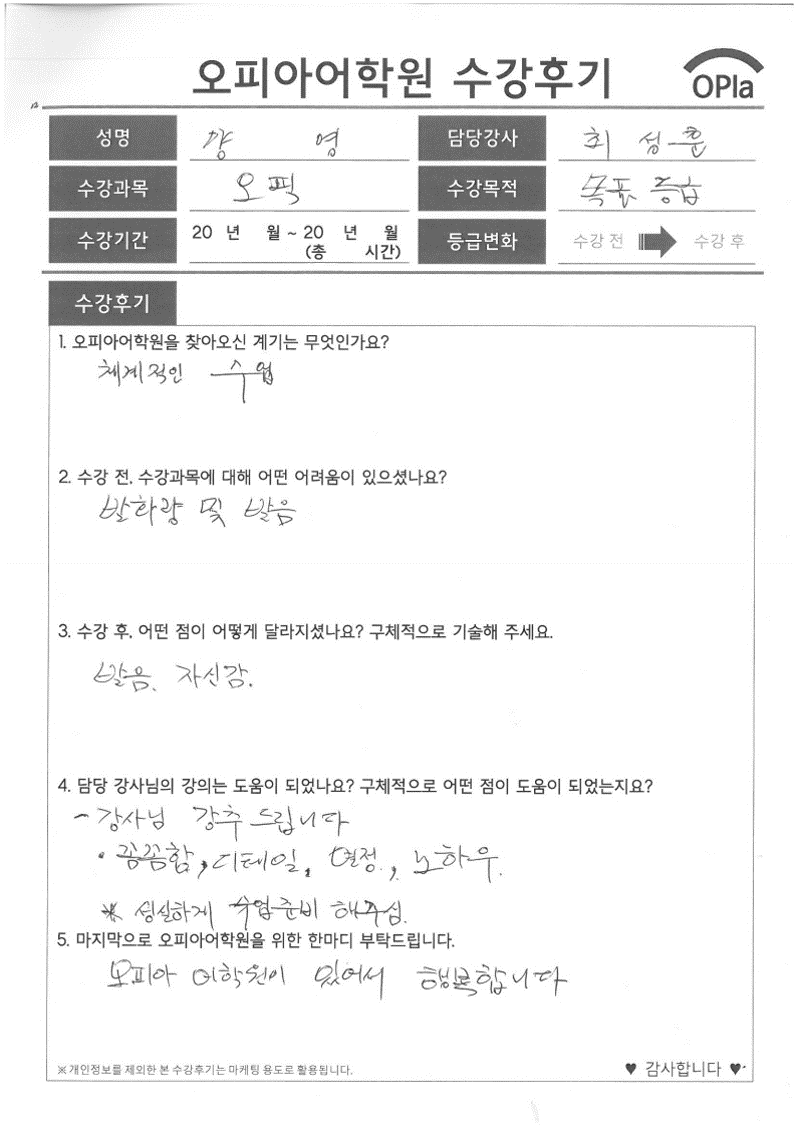 오피아어학원 수강후기
OPIa
성명 양 영 담당강사 최성훈
수강과목 오픽 수강목적 목표 등급
수강기간 20 년 월 ~ 20 년 월 등급변화 수강 전 수강 후
(총 시간)
수강후기
1. 오피아어학원을 찾아오신 계기는 무엇인가요?
체계적인 수업
2. 수강 전, 수강과목에 대해 어떤 어려움이 있으셨나요?
발화량 및 발음
3. 수강 후, 어떤 점이 어떻게 달라지셨나요? 구체적으로 기술해 주세요.
발음, 자신감.
4. 담당 강사님의 강의는 도움이 되었나요? 구체적으로 어떤 점이 도움이 되었는지요?
- 강사님 강추 드립니다
• 꼼꼼함, 디테일, 열정, 노하우.
※ 성실하게 수업준비 해주심.
5. 마지막으로 오피아어학원을 위한 한마디 부탁드립니다.
오피아 어학원이 있어서 행복합니다
※ 개인정보를 제외한 본 수강후기는 마케팅 용도로 활용됩니다.
♥ 감사합니다 ♥